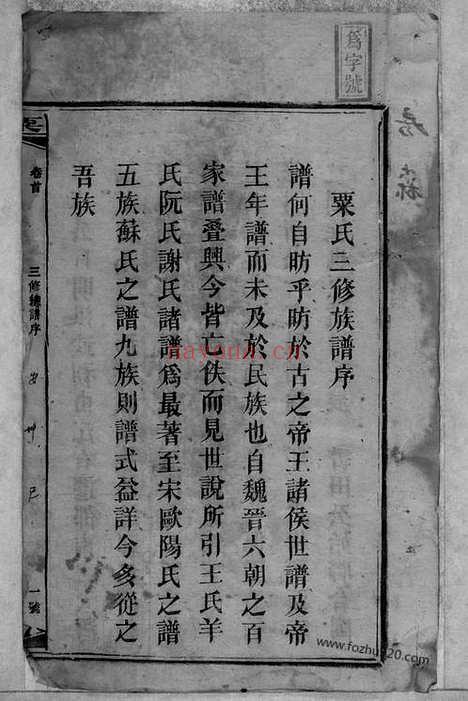 爲字號
粟氏三修族譜序
譜何自昉乎昉於古之帝王諸侯世譜及帝
王年譜而未及於民族也自魏晉六朝之百
家譜叠興今皆亡佚而見世說所引王氏羊
氏阮氏謝氏諸譜爲最著至宋歐陽氏之譜
五族蘇氏之譜九族則譜式益詳今多從之
吾族
卷首
三修總譜序
一號
nayona.cn
www.fozhu920.com